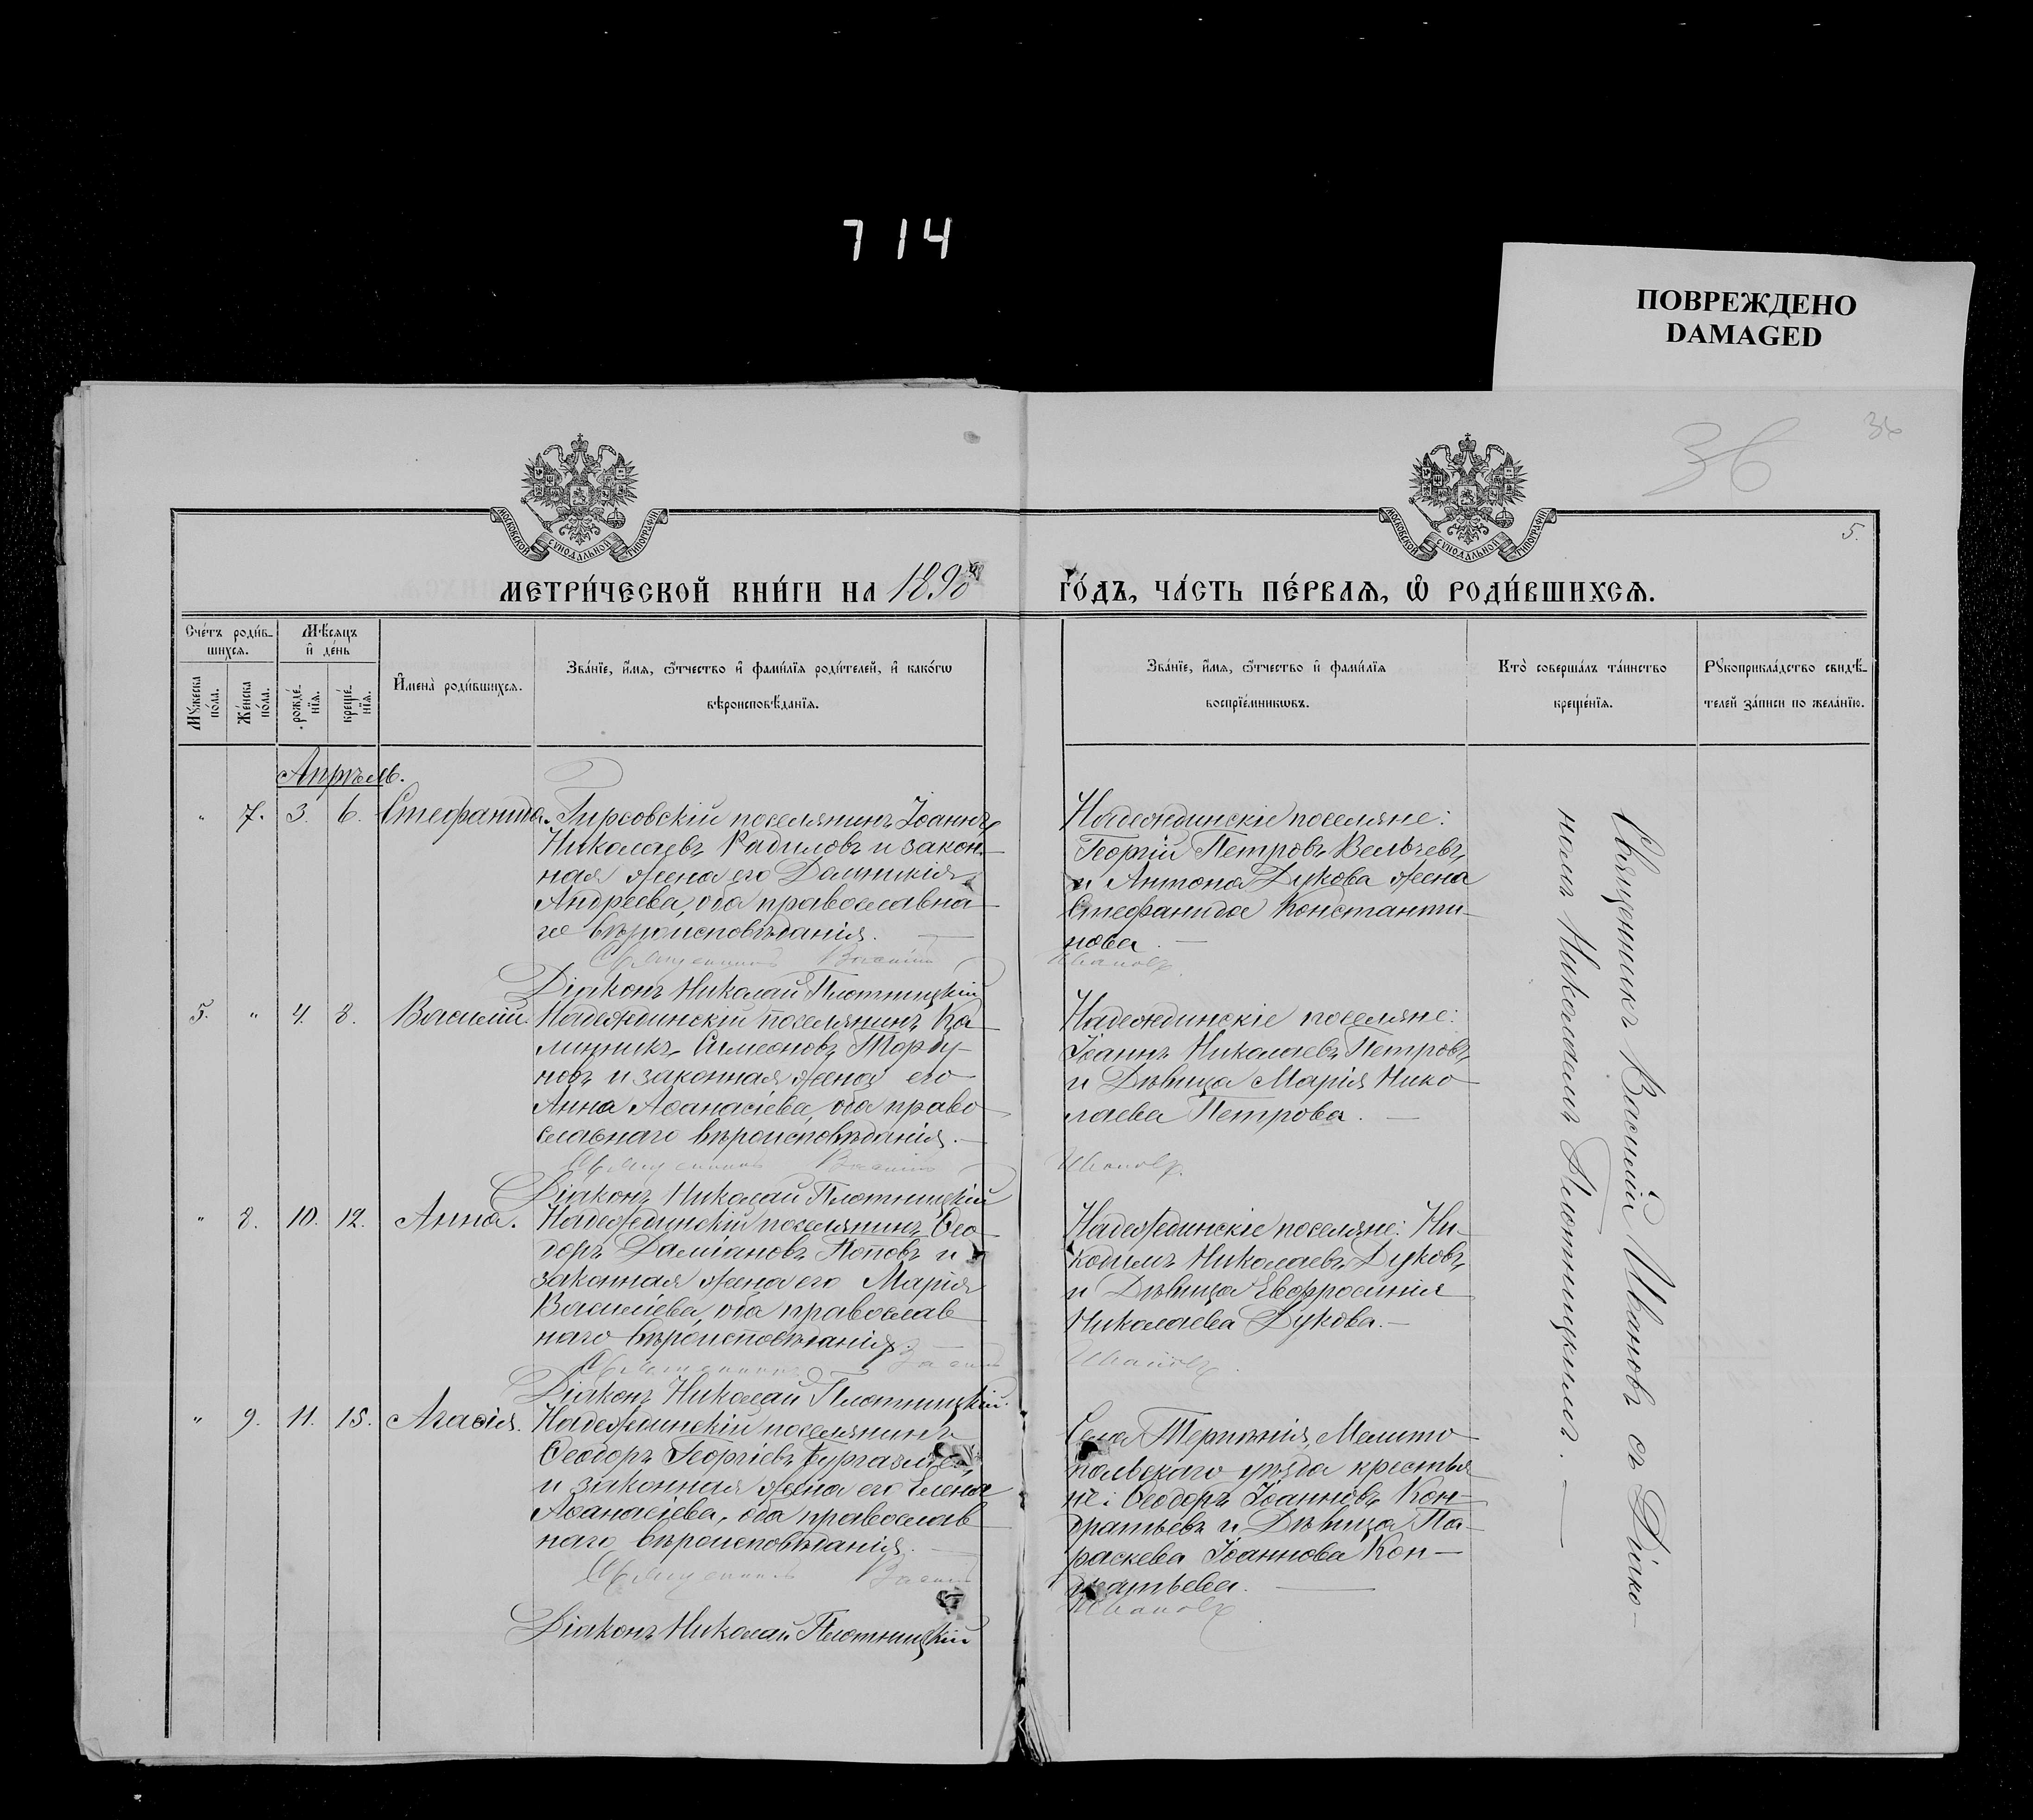 714
ПОВРЕЖДЕНО
DAMAGED
36
36
5.
МОСКОВСКОЙ СѴНОДАЛЬНОЙ ТИПОГРАФІИ
МОСКОВСКОЙ СѴНОДАЛЬНОЙ ТИПОГРАФІИ
МЕТРИ́ЧЕСКОЙ КНИ́ГИ НА 1890
ГО́ДЪ, ЧА́СТЬ ПЕ́РВАѦ, Ѡ РОДИ́ВШИХСѦ.
Сче́тъ роди́в-
шихсѧ.
Мꙋ́жеска по́ла.
Же́нска по́ла.
Мѣ́сѧцъ
и҆ де́нь
рожде́-
нїѧ.
креще́-
нїѧ.
И҆мена̀ роди́вшихсѧ.
Зва́нїе, и҆́мѧ, ѻ҆́тчество и҆ фами́лїѧ роди́телей, и҆ како́гѡ
вѣроисповѣ́данїѧ.
Зва́нїе, и҆́мѧ, ѻ҆́тчество и҆ фами́лїѧ
воспрїе́мникѡвъ.
Кто̀ соверша́лъ та́инство
креще́нїѧ.
Рꙋкоприкла́дство свидѣ́-
телей за́писи по жела́нїю.
Апрѣль.
" 7. 3. 6. Стефанида. Гирсовскій поселянинъ Іоаннъ
Николаевъ Радиловъ и закон-
ная жена его Домникія
Андреева, оба православна-
го вѣроисповѣданія. —
Священникъ Василій Ивановъ.
Діаконъ Николай Плотницкій
Надеждинскіе поселяне:
Георгій Петровъ Вельчевъ,
и Антона Дукова жена
Стефанида Константи-
нова. —
5. " 4. 8. Василій. Надеждинскій поселянинъ Ка-
линникъ Симеоновъ
новъ и законная жена его
Анна Аѳанасіева, оба право-
славнаго вѣроисповѣданія. —
Священникъ Василій Ивановъ.
Діаконъ Николай Плотницкій
Надеждинскіе поселяне:
Іоаннъ Николаевъ Петровъ,
и Дѣвица Марія Нико-
лаева Петрова. —
" 8. 10. 12. Анна. Надеждинскій поселянинъ Ѳео-
доръ Даміановъ Поповъ и
законная жена его Марія
Василіева, оба православ-
наго вѣроисповѣданія.
Священникъ Василій Ивановъ.
Діаконъ Николай Плотницкій.
Надеждинскіе поселяне: Ни-
кодимъ Николаевъ Дуковъ,
и Дѣвица Евфросинія
Николаева Дукова. —
" 9. 11. 15. Агаѳія. Надеждинскій поселянинъ
Ѳеодоръ Георгіевъ
и законная жена его Елена
Аѳанасіева, оба православ-
наго вѣроисповѣданія. —
Священникъ Василій Ивановъ
Діаконъ Николай Плотницкій
Села Терпѣнія, Мелито-
польскаго уѣзда крестья-
не: Ѳеодоръ Іоанновъ Кон-
дратьевъ и Дѣвица Па-
раскева Іоаннова Кон-
дратьева. —
Священникъ Василій Ивановъ съ Діако-
номъ Николаемъ Плотницкимъ. —